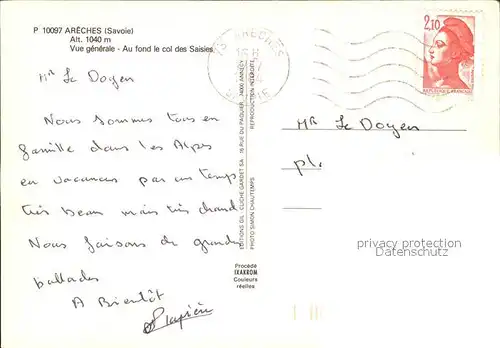 P 10097 ARÊCHES (Savoie)
Alt. 1040 m
Vue générale - Au fond le col des Saisies
Mr Le Doyen
Nous sommes tous en
famille dans les Alpes
en vacances par un temps
très beau mais très chaud
Nous faisons de grandes
ballades
A Bientôt
EDITIONS GIL - CLICHÉ GARDET SA - 16 RUE DU PAQUIER, 74000 ANNECY
REPRODUCTION INTERDITE
PHOTO SIMON CHAUTEMPS
Procédé
IXAKROM
Couleurs
réelles
73 ARECHES
SAVOIE
2,10
REPUBLIQUE FRANCAISE
Mr Le Doyen
pl.
privacy protection
Datenschutz